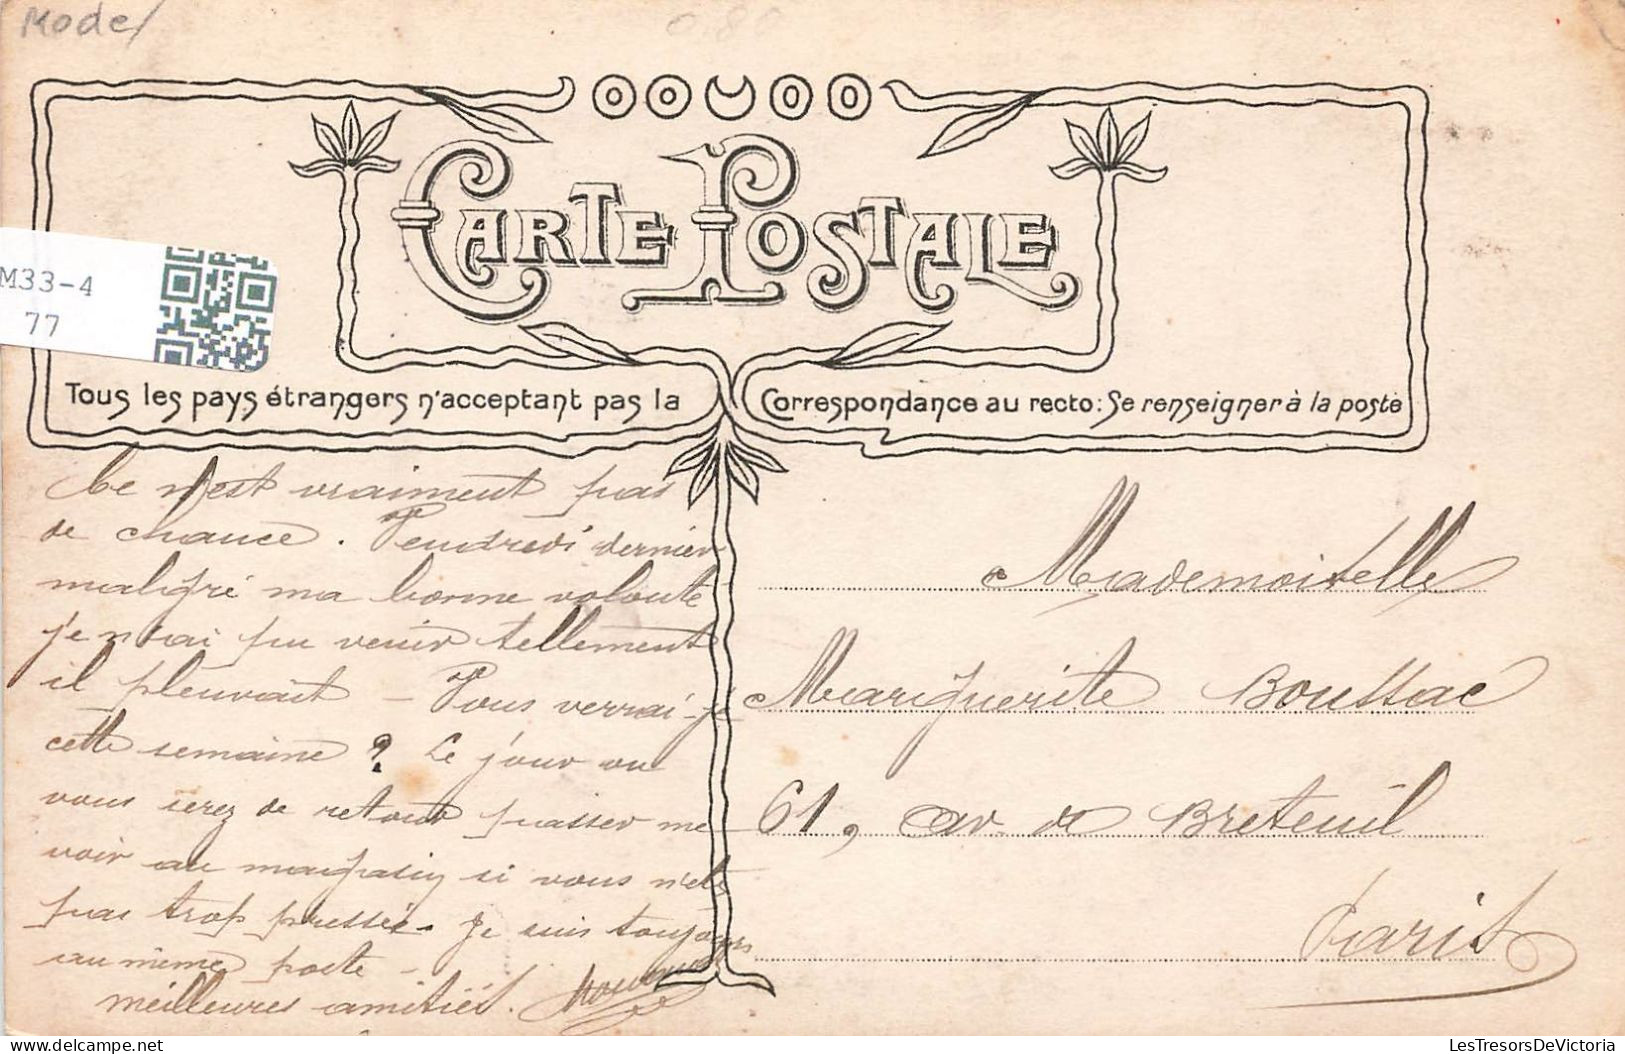 Model
0.80
M33-4
77
CARTE POSTALE
Tous les pays étrangers n'acceptant pas la Correspondance au recto: Se renseigner à la poste
Ce n'est vraiment pas
de chance. Vendredi dernier
malgré ma bonne volonté
je n'ai pu venir tellement
il pleuvait - Vous verrai-je
cette semaine ? Le jour ou
vous serez de retour passer me
voir au magasin si vous n'êtes
pas trop pressée. Je suis toujours
au même poste -
meilleures amitiés.
Mademoiselle
Marguerite Boussac
61, av. de Breteuil
Paris
delcampe.net
LesTresorsDeVictoria